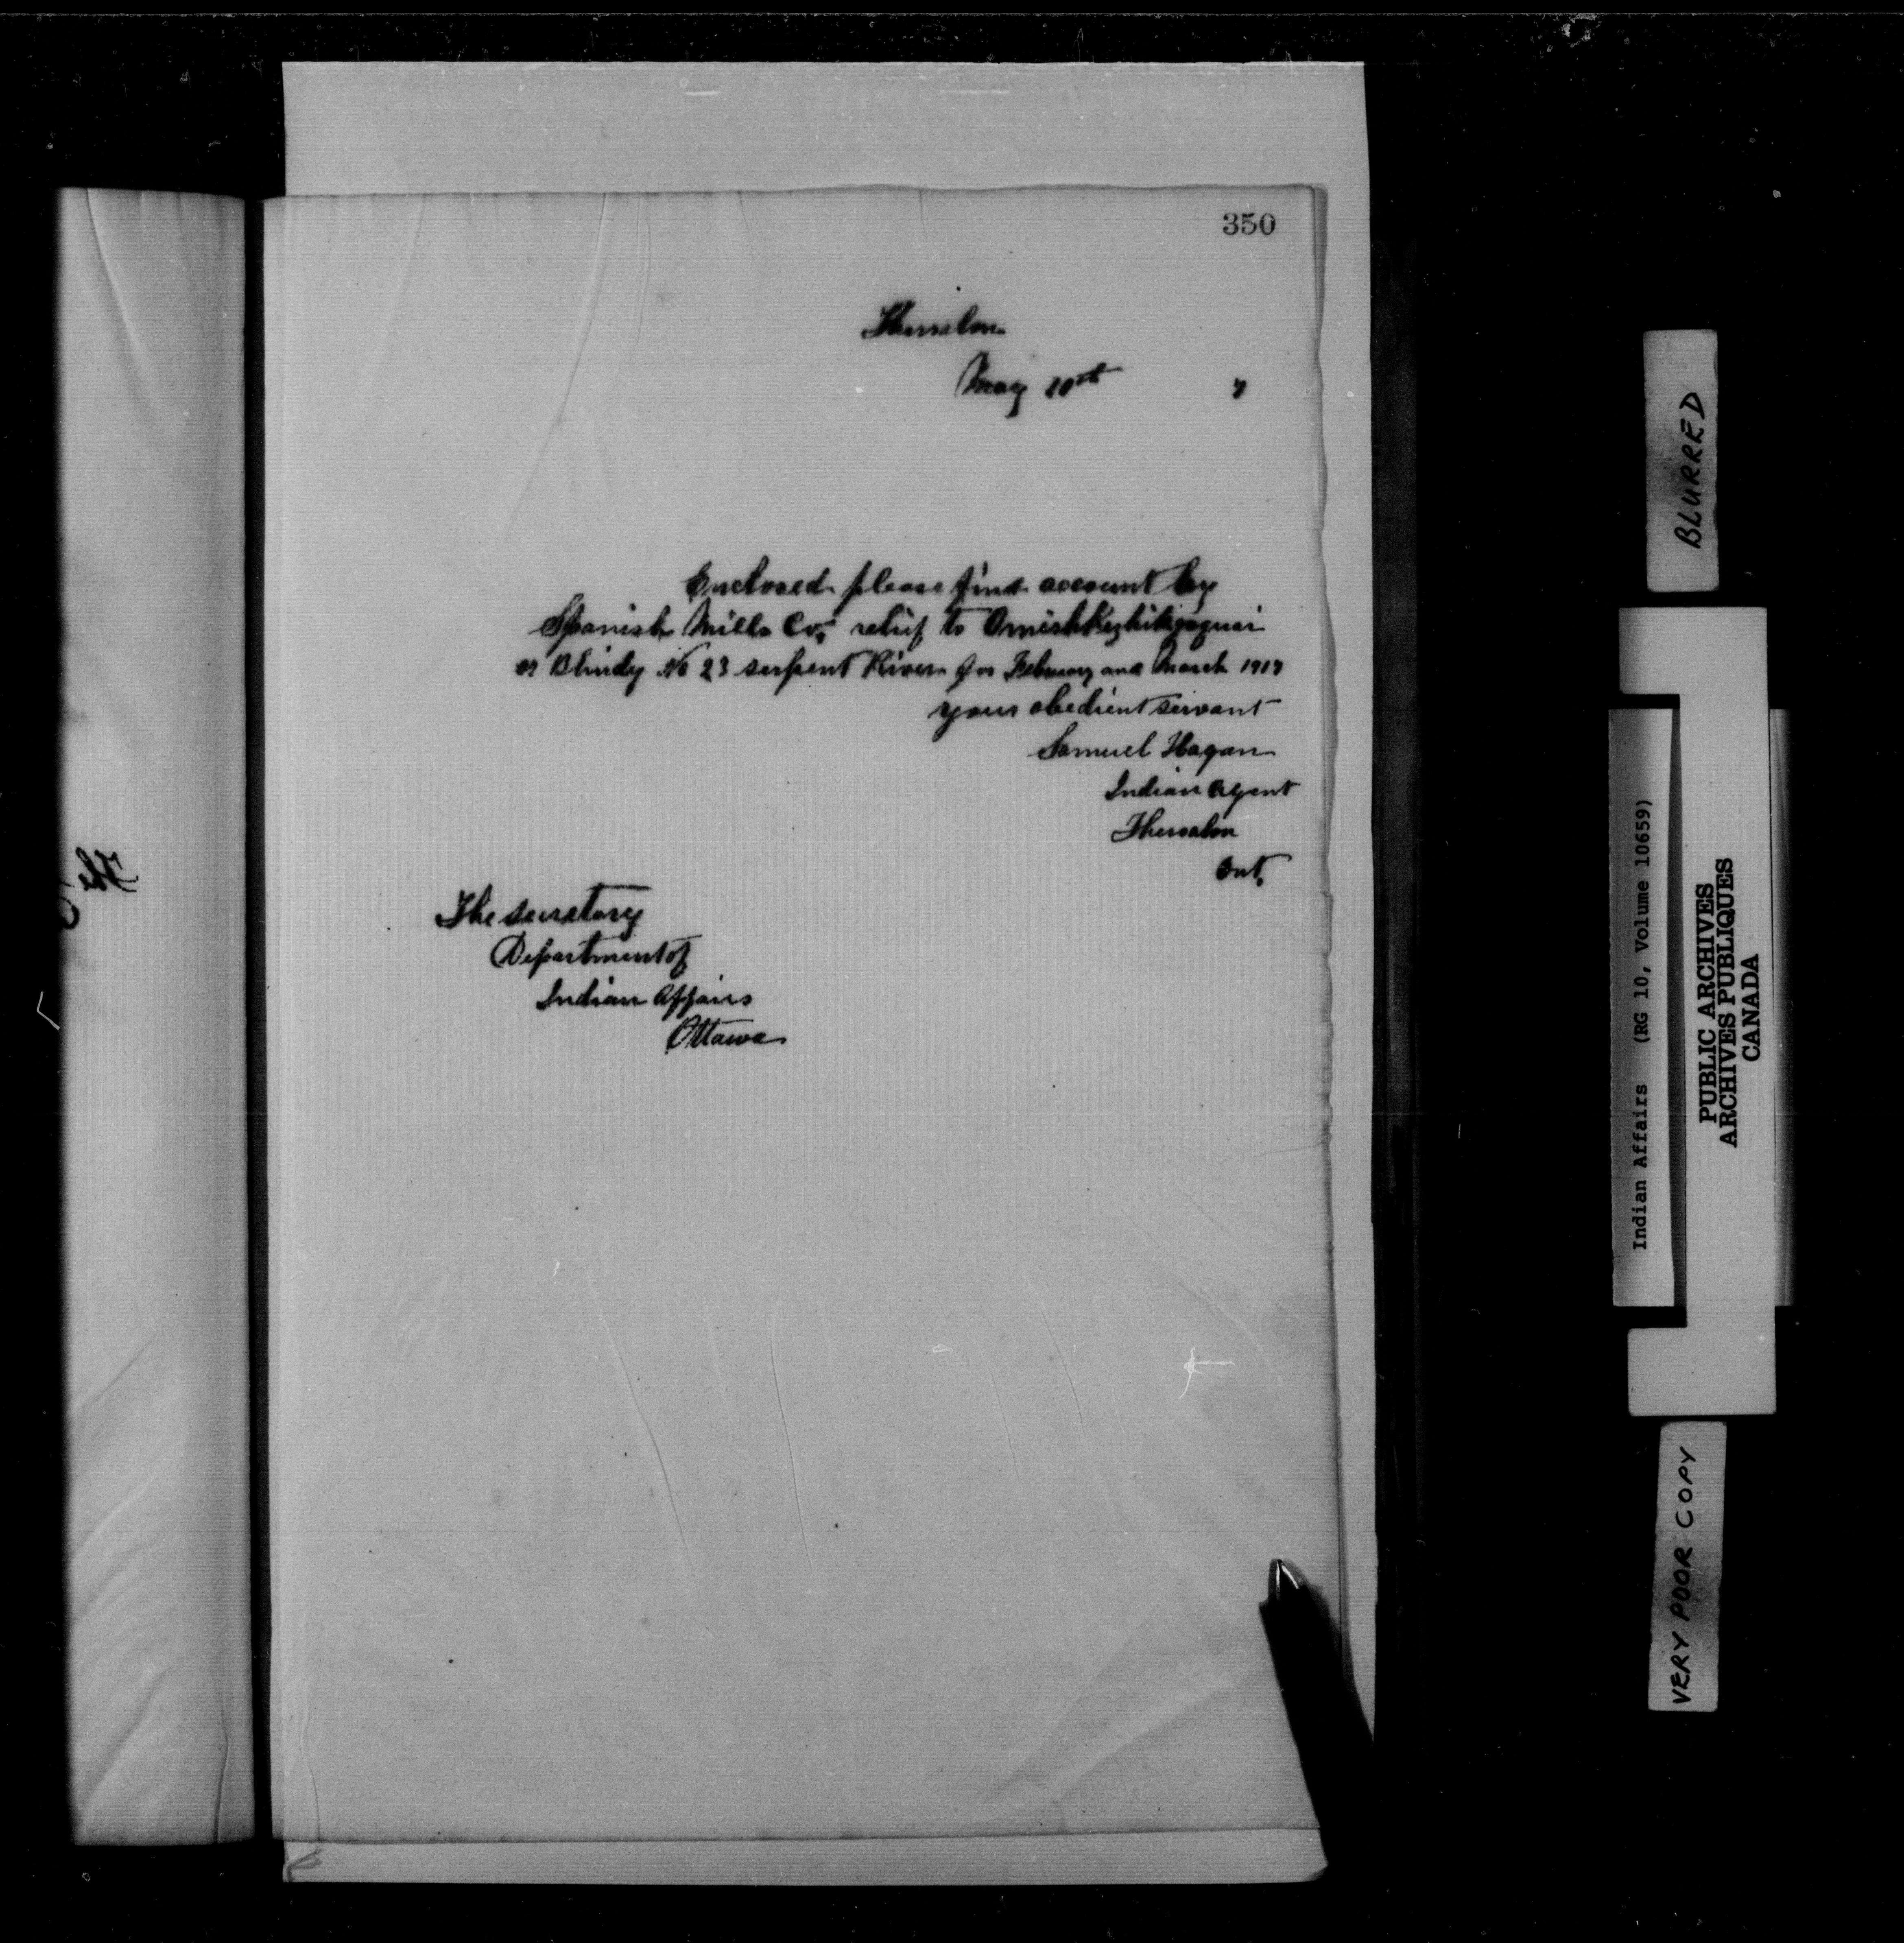 350
Thessalon
May 10th 7
Enclosed please find account by
Spanish Mills Co, relief to
or Blindy No 23 serpent River for February and March 1917
your obedient servant
Samuel Hagan
Indian Agent
Thessalon
Ont.
The secretary
Department of
Indian Affairs
Ottawa
The
BLURRED
Indian Affairs (RG 10, Volume 10659)
PUBLIC ARCHIVES
ARCHIVES PUBLIQUES
CANADA
VERY POOR COPY